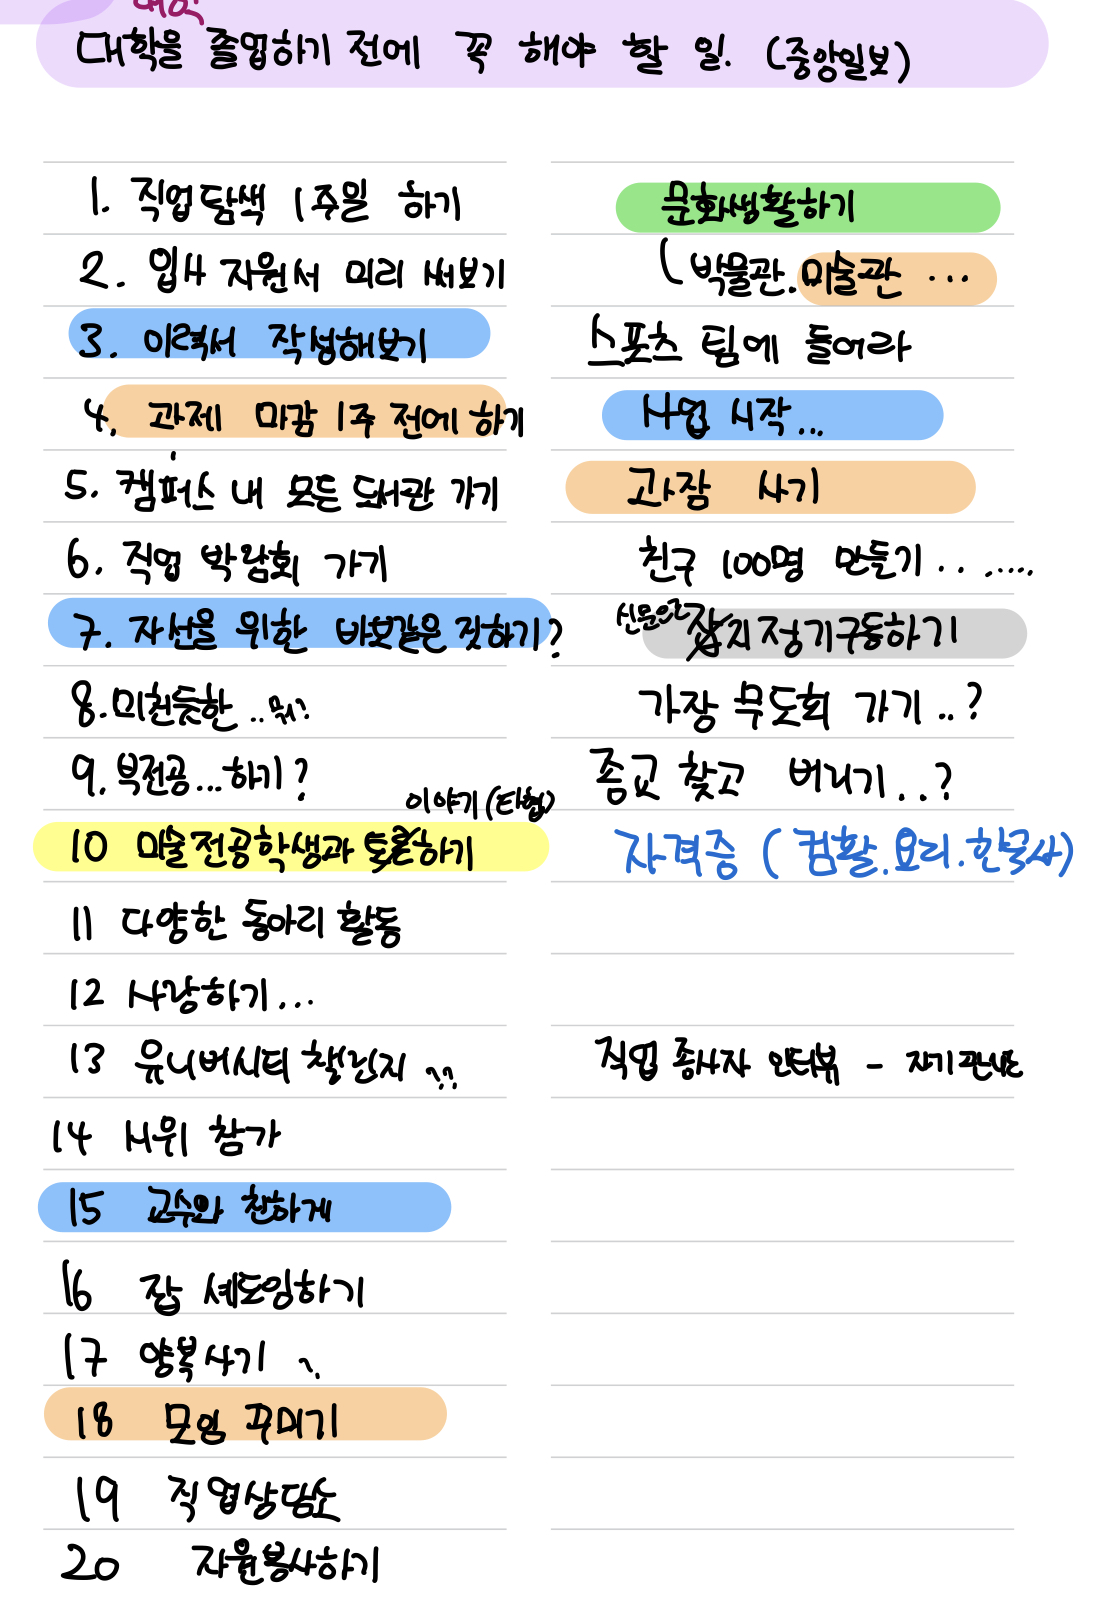 대학을 졸업하기 전에 꼭 해야 할 일. (중앙일보)
1. 직업탐색 1주일 하기
2. 입사 지원서 미리 써보기
3. 이력서 작성해보기
4. 과제 마감 1주 전에 하기
5. 캠퍼스 내 모든 도서관 가기
6. 직업 박람회 가기
7. 자선을 위한 바보같은 짓하기?
8. 미친듯한 ..뭐?
9. 부전공...하기?
이야기(타협)
10 미술전공학생과 토론하기
11 다양한 동아리 활동
12 사랑하기...
13 유니버시티 챌린지 ??
14 시위 참가
15 교수와 친하게
16 잡 셰도잉하기
17 양복사기 ?
18 모임 꾸미기
19 직업상담소
20 자원봉사하기
문화생활하기
( 박물관.미술관 ...
스포츠 팀에 들어라
사업 시작...
과잠 사기
친구 100명 만들기 .. .....
신문으로
잡지정기구독하기
가장 무도회 가기..?
종교 찾고 버리기..?
자격증 (컴활.요리.한국사)
직업 종사자 인터뷰 - 자기관심도